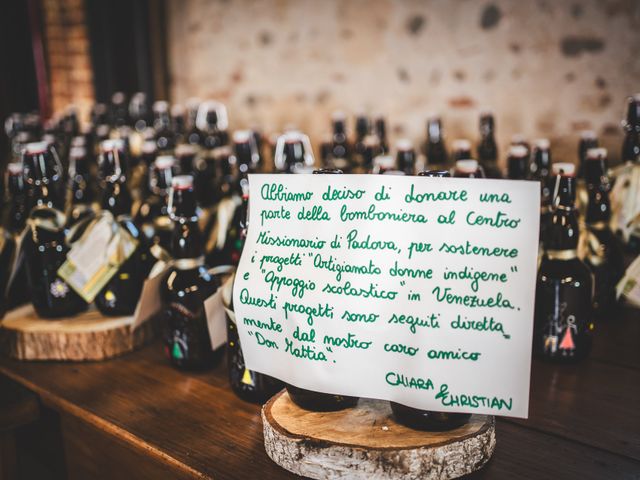 Abbiamo deciso di donare una
parte della bomboniera al Centro
Missionario di Padova, per sostenere
i progetti "Artigianato donne indigene"
e "Appoggio scolastico" in Venezuela.
Questi progetti sono seguiti diretta_
mente dal nostro caro amico
"Don Mattia".
CHIARA &
CHRISTIAN